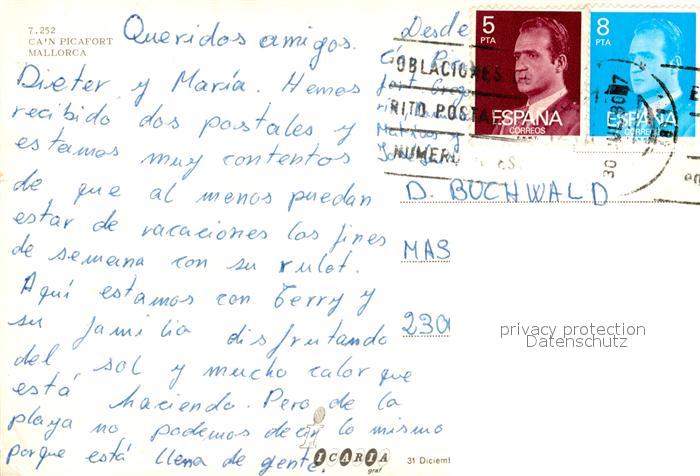 7.252
CA'N PICAFORT
MALLORCA
Queridos amigos.
Dieter y María. Hemos
recibido dos postales y
estamos muy contentos
de que al menos puedan
estar de vacaciones los fines
de semana con su rulot.
Aquí estamos con Terry y
su familia disfrutando
del sol y mucho calor que
está haciendo. Pero de la
playa no podemos decir lo mismo
porque está llena de gente.
Desde
5
PTA
ESPAÑA
CORREOS
8
PTA
ESPAÑA
CORREOS
OBLACIONES
RITO POSTA
NUMER
30
D. BUCHWALD
MAS
230
privacy protection
Datenschutz
ICARIA
graf
31 Diciemb